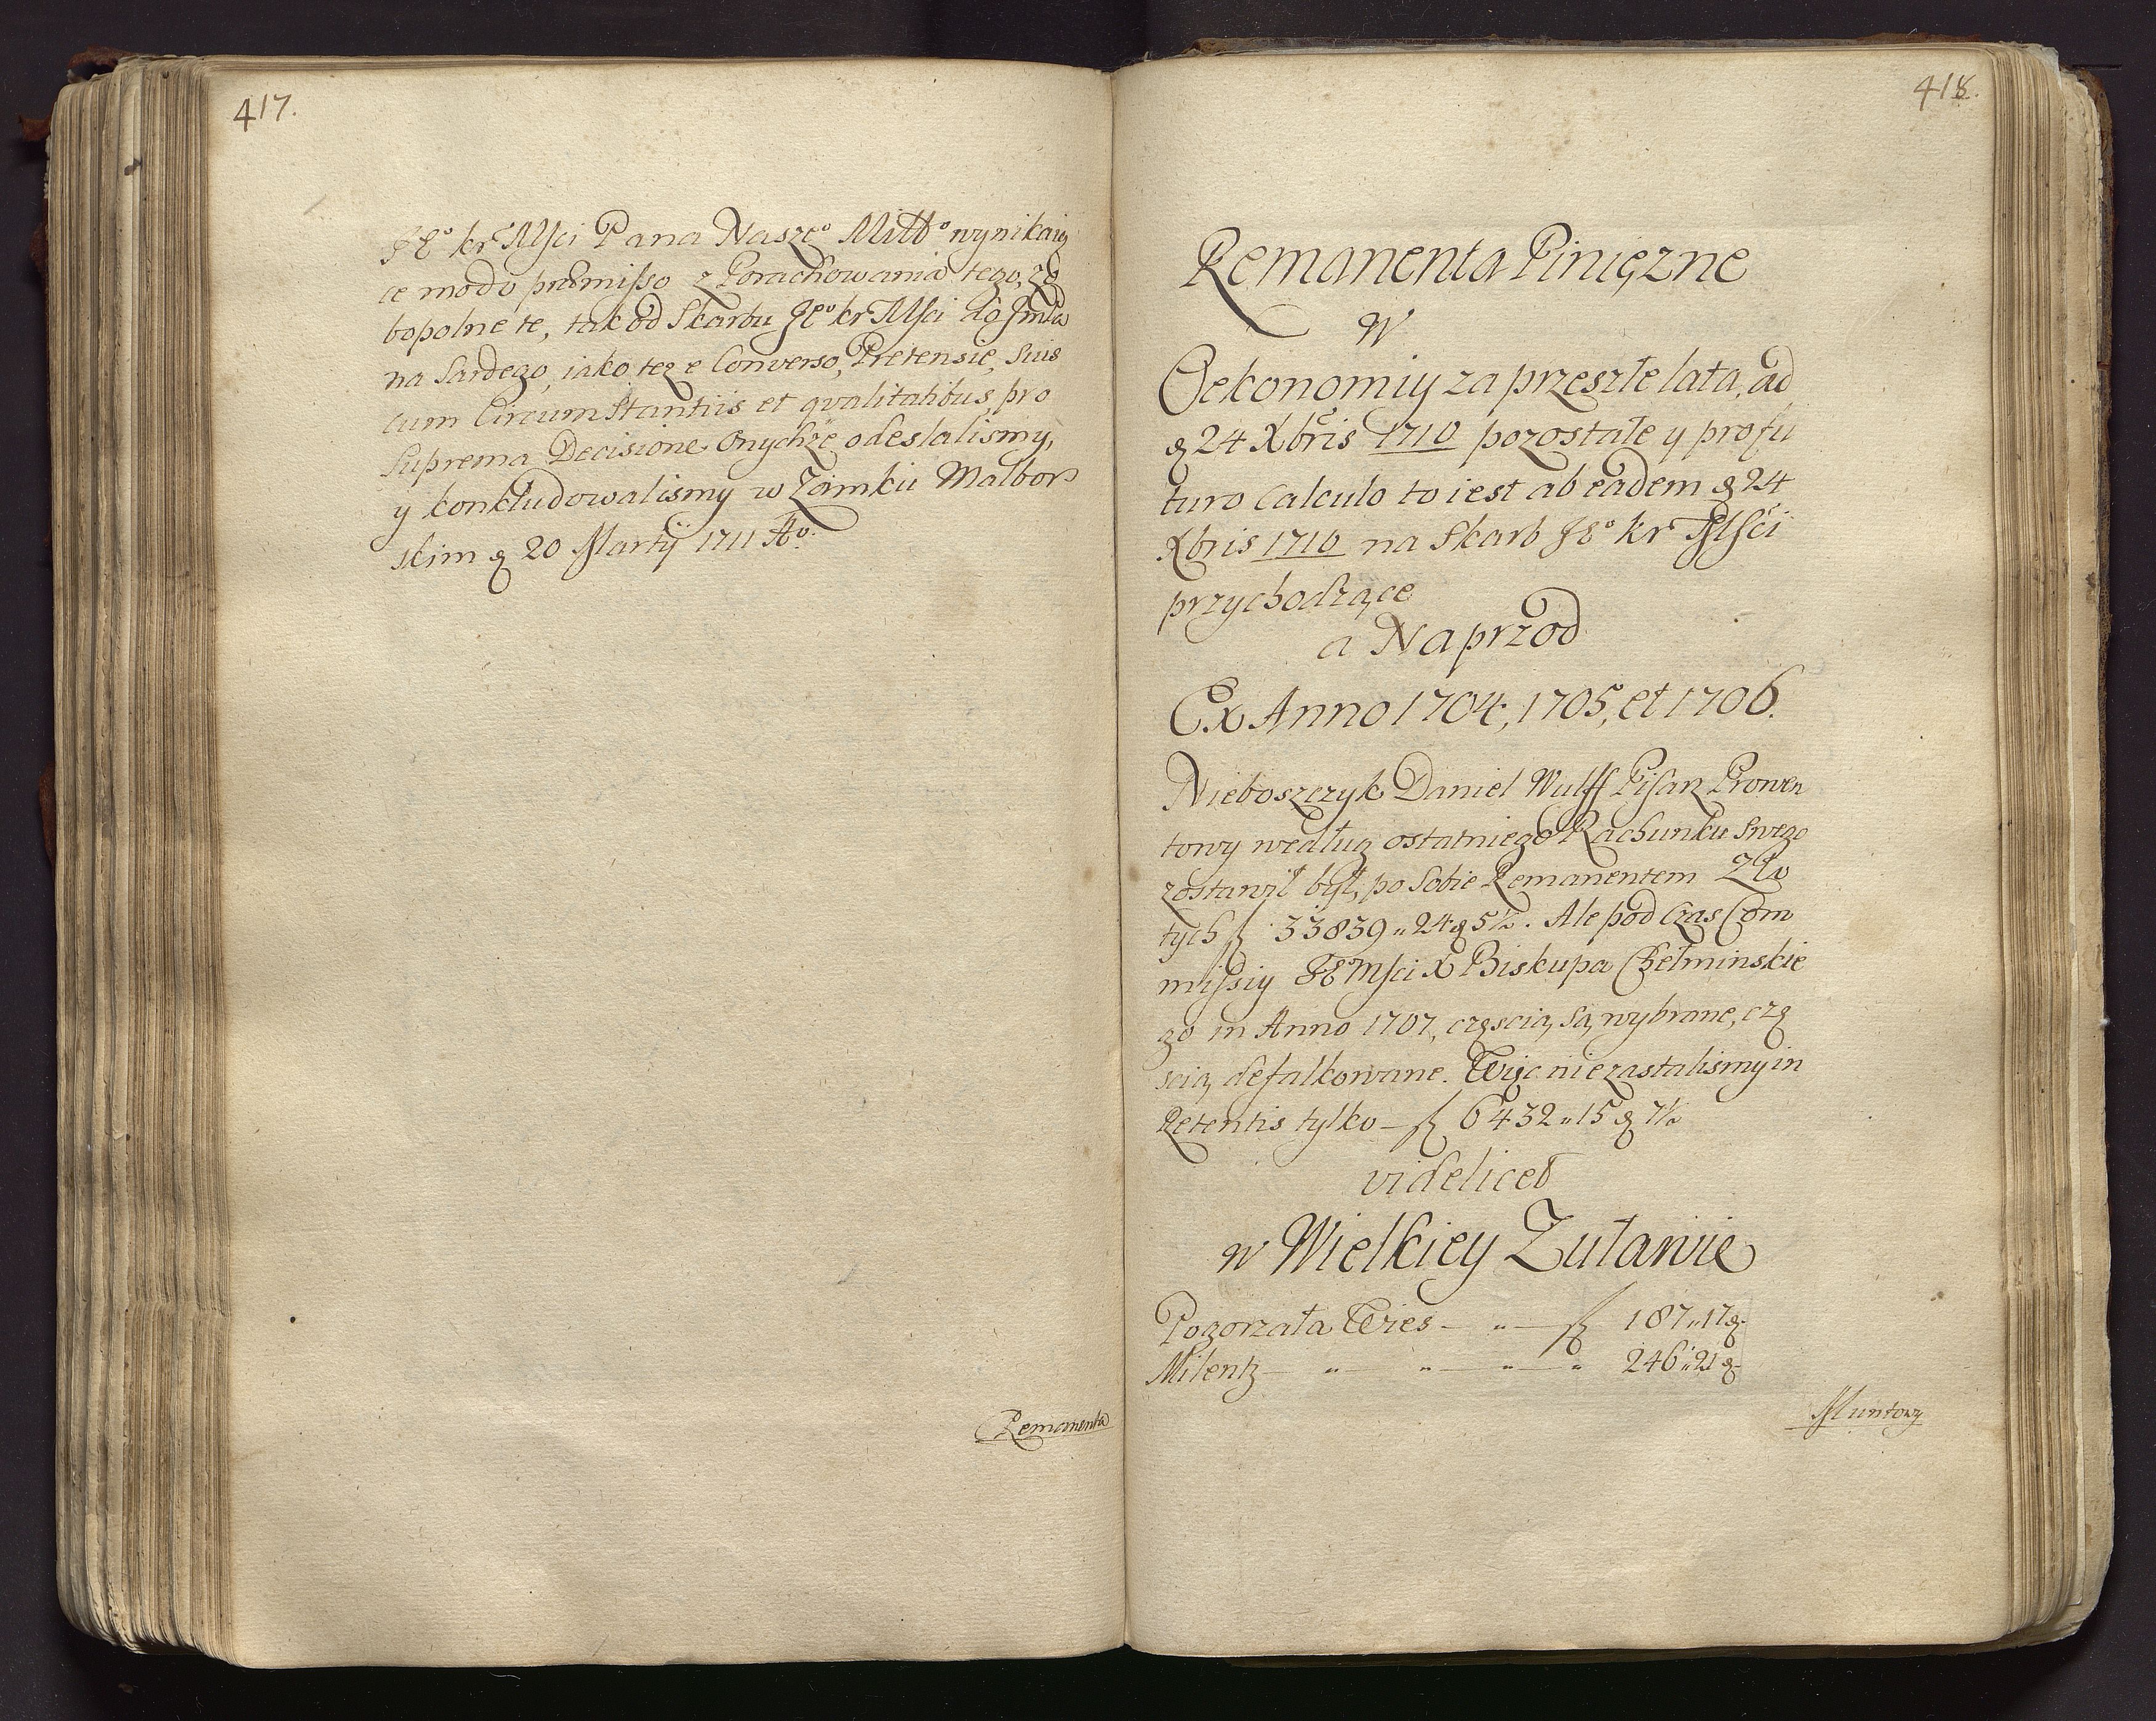 417.
JEº kr Mści Pana Naszeº Miłłº wynikaią
ce modo præmisso z Porachowania tego, zo
bopolne te, tak od Skarbu JEº kr Mści do Jmści
na Sardego, iako tez e Converso, Pretensie, Suis
cum Circumstantiis et qvalitatibus, pro
Suprema Decisione onychże odeslalismy,
y konkłudowalismy w Zamku Malbor
skim d 20 Martÿ 1711 Aº.
Remanenta
418.
Remanenta Pinięzne
w
Oekonomiy za przeszłe lata, ad
d 24 Xbris 1710 pozostałe y profu
turo Calculo to iest ab eadem d 24
Xbris 1710 na Skarb JEº kr Mści
przychodzące
a Naprzod
Ex Anno 1704, 1705, et 1706.
Nieboszczyk Daniel Wulff Pisarz Prowen
towy według ostatniego Rachunku Swego
zostawił był, po Sobie Remanentem Zło
tych f 33839 „ 24 g 5½. Ale pod Czas Com
missiy JE Mści X Biskupa Chełminskie
go in Anno 1707, częscią, są, wybrane, czę
scią, defalkowane. Więc nie zastalismy in
Retentis tylko — f 6432 „ 15 g 7½
videlicet
w Wielkiey Zuławie
Pogorzała Wies — „ — f 187 „ 17 g.
Milentz — „ — „ — „ — „ 246 „ 21 g.
Muntowy